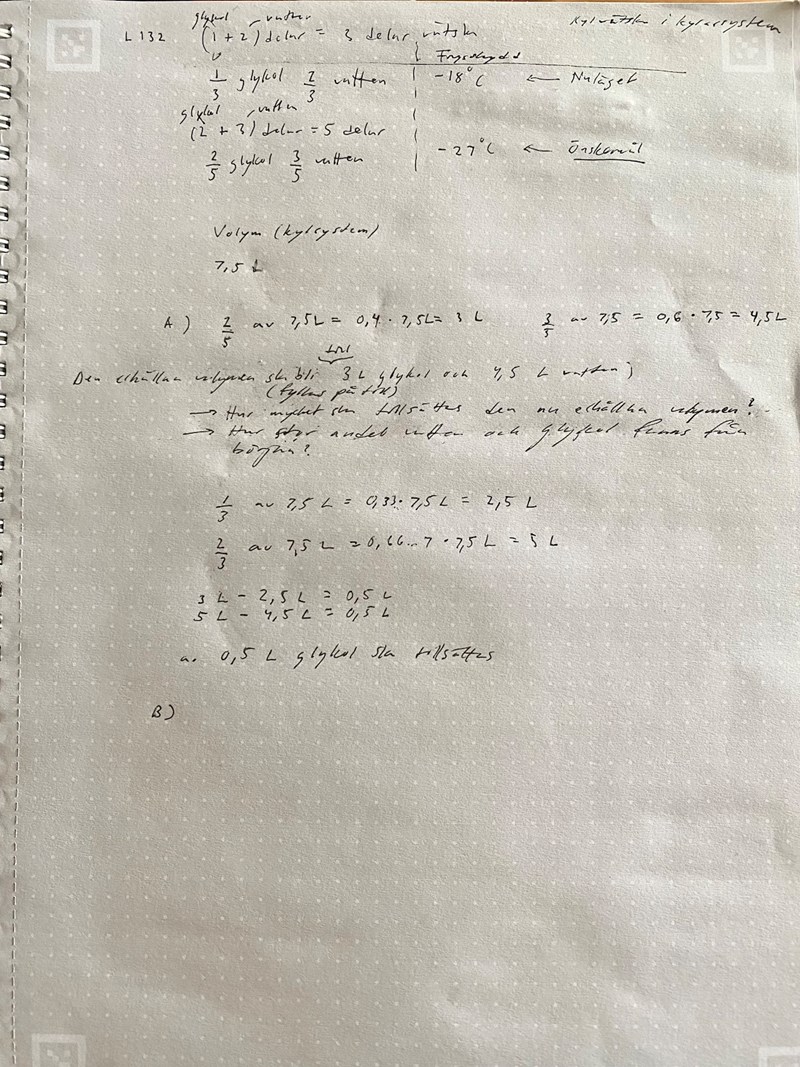 glykol vatten
Kylvätska i kylarsystem
L 132 (1 + 2) delar = 3 delar vätska
Frysskydd
1/3 glykol 2/3 vatten -18°C ← Nuläget
glykol vatten
(2 + 3) delar = 5 delar
2/5 glykol 3/5 vatten -27°C ← Önskemål
Volym (kylsystem)
7,5 L
A) 2/5 av 7,5L = 0,4 · 7,5L = 3 L 3/5 av 7,5 = 0,6 · 7,5 = 4,5L
till
Den erhållna volymen ska bli 3 L glykol och 4,5 L vatten)
(fyllas på till)
→ Hur mycket ska tillsättas den nu erhållna volymen?
→ Hur stor andel vatten och glykol fanns från
början?
1/3 av 7,5 L = 0,33· 7,5L = 2,5 L
2/3 av 7,5 L = 0,66..7 · 7,5 L = 5 L
3 L - 2,5 L = 0,5 L
5 L - 4,5 L = 0,5 L
a. 0,5 L glykol ska tillsättas
B)